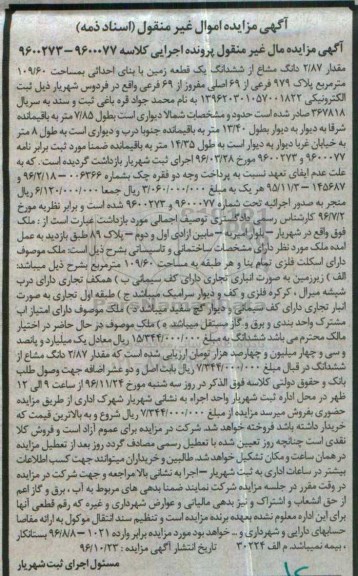 آگهی مزایده اموال غیر منقول (اسناد ذمه)
آگهی مزایده مال غیر منقول پرونده اجرایی کلاسه ۹۶۰۰۰۷۷ – ۹۶۰۰۲۷۳
مقدار ۲/۸۷ دانگ مشاع از ششدانگ یک قطعه زمین با بنای احداثی بمساحت ۱۰۹/۶۰
مترمربع پلاک ۹۷۹ فرعی از ۶۹ اصلی مفروز از ۶۹ فرعی واقع در فردوس شهریار ذیل ثبت
الکترونیکی ۱۳۹۶۲۰۳۰۱۰۵۷۰۰۱۸۲۲ به نام محمد جواد قره باغی ثبت و سند به سریال
۳۶۷۸۱۸ صادر شده است حدود و مشخصات شمالا دیواری است بطول ۷/۸۵ متر به باقیمانده
شرقا به دیوار به دیوار بطول ۱۳/۴۰ متر به باقیمانده جنوبا درب و دیواری است به طول ۸ متر
به خیابان غربا دیوار به دیوار است به طول ۱۴/۳۵ متر به باقیمانده ضمنا مورد ثبت برابر نامه
۹۶۰۰۰۷۷ و ۹۶۰۰۲۷۳ مورخ ۹۶/۰۳/۲۸ اجرای ثبت شهریار بازداشت گردیده است . که به
علت عدم ایفای تعهد نسبت به پرداخت وجه دو فقره چک بشماره ۰۰۶۳۶۶ – ۹۶/۲/۱۸ و
۱۴۵۶۸۷ – ۹۵/۱۱/۳ هر یک به مبلغ ۳/۰۶۰/۰۰۰/۰۰۰ ریال جمعا ۶/۱۲۰/۰۰۰/۰۰۰ ریال
منجر به صدور اجرائیه تحت شماره ۹۶۰۰۰۷۷ و ۹۶۰۰۲۷۳ شده است و برابر نظریه مورخ
۹۶/۷/۲ کارشناس رسمی دادگستری توصیف اجمالی مورد بازداشت عبارت است از : ملک
فوق واقع در شهریار – بلوار امیریه – مابین ازادی اول و دوم – پلاک ۸۹ طبق بازدید به عمل
امده ملک مورد نظر دارای مشخصات ساختمانی و تاسیساتی بشرح ذیل است: ملک موصوف
دارای اسکلت فلزی تمام بنا و هر طبقه به مساحت ۱۰۹/۶۰ مترمربع بشرح ذیل میباشد:
الف ) زیرزمین به صورت انباری تجاری دارای کف سیمانی ب ) همکف تجاری دارای درب
شیشه میرال ، کرکره فلزی و کف و دیوار سرامیک میباشد ج ) طبقه اول تجاری به صورت
انبار تجاری دارای کف سیمانی و دیوار گچ سفید میباشد د ) ملک موصوف دارای امتیاز اب
مشترک واحد بندی و برق و گاز مستقل میباشد. ه ) ملک موصوف در حال حاضر در اختیار
مالک محترم می باشد ششدانگ به مبلغ ۱۵/۳۴۴/۰۰۰/۰۰۰ ریال معادل یک میلیارد و پانصد
و سی و چهار میلیون و چهارصد هزار تومان ارزیابی شده است که مقدار ۲/۸۷ دانگ مشاع از
ششدانگ در قبال مبلغ ۷/۳۴۴/۰۰۰/۰۰۰ ریال بابت اصل و دو عشر اضافه جهت وصول طلب
بانک و حقوق دولتی کلاسه فوق الذکر در روز سه شنبه مورخ ۹۶/۱۱/۲۴ از ساعت ۹ الی ۱۲
ظهر در محل اداره ثبت شهریار واحد اجراء به نشانی شهریار شهرک اداری از طریق مزایده
حضوری بفروش میرسد مزایده از مبلغ ۷/۳۴۴/۰۰۰/۰۰۰ ریال شروع و به بالاترین قیمت که
خریدار داشته باشد فروخته خواهد شد. شرکت در مزایده برای عموم آزاد است و فروش کلا
نقدی است چنانچه روز تعیین شده با تعطیل رسمی مصادف گردد روز بعد از تعطیل مزایده
در همان ساعت و مکان تشکیل خواهد شد. طالبین و خریداران میتوانند جهت کسب اطلاعات
بیشتر در ساعات اداری به ثبت شهریار – اجرا به نشانی بالا مراجعه و جهت شرکت در مزایده
در وقت مقرر در جلسه مزایده شرکت نمایند ضمنا بدهی های مربوط به آب ، برق و گاز اعم
از حق انشعاب و اشتراک و نیز بدهی مالیاتی و عوارض شهرداری و غیره که رقم قطعی آنها
برای این اداره معلوم نشده بعهده برنده مزایده است و تنظیم سند انتقال موکول به ارائه مفاصا
حسابهای دارایی و شهرداری و ... خواهد بود مورد مزایده برابر وارده ۱۰۲۱ – ۹۶/۸/۸ بستانکار
، بیمه نمیباشد. م الف ۳۰۲۲۴ تاریخ انتشار آگهی مزایده : ۹۶/۱۰/۲۳
مسئول اجرای ثبت شهریار